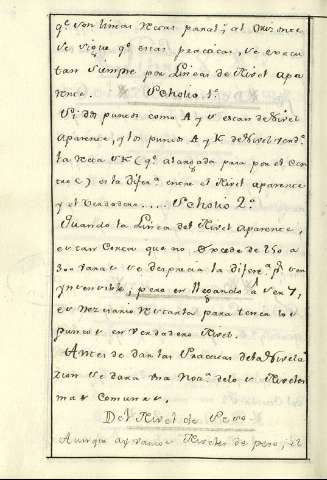 qe son lineas rectas paral; al Orizonte
se sigue qe estas practicas, se execu
tan siempre por Lineas de Nivel apa
rente. Scholio 1º
Si dos puntos como A y S estan de Nivel
aparente, y los puntos A y K de Nivel verdº
la recta SK (qe alargada pasa por el Cen
tro C) es la difera entre el Nivel aparente
y el Verdadero.... Scholio 2º
Quando la Linea del Nivel Aparente,
es tan Corta que no Excede de 250 a
300 tesas se desprecia la difera pr ser
ynsensible; pero en llegando a ser 7,
es nezesario restarlas para tener los
puntos en Verdadero Nivel.
Antes de dar las Practicas dela Nivela
zion se dara una Noa delos Niveles
mas Comunes.
Del Nivel de Peso
Aunque ay varios Niveles de peso; el